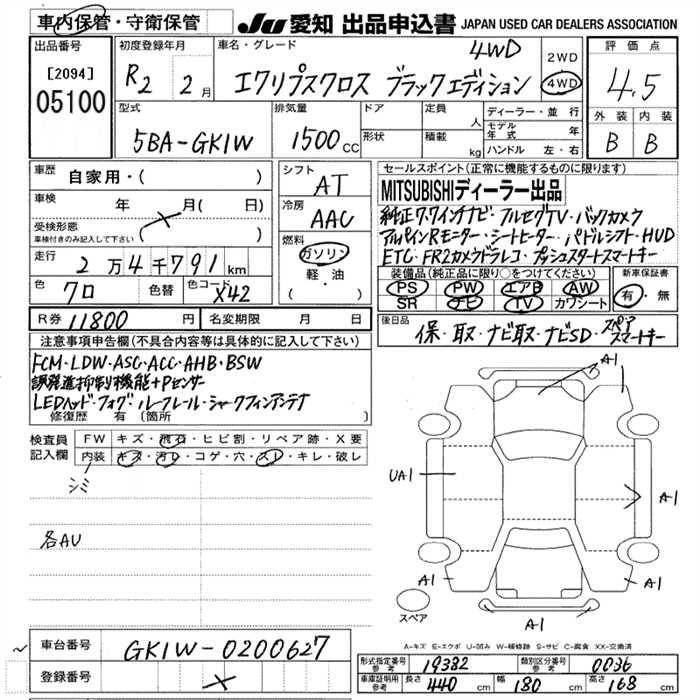 車内保管・守衛保管
JU 愛知 出品申込書 JAPAN USED CAR DEALERS ASSOCIATION
出品番号 初度登録年月 車名・グレード 評価点
[2094]
05100
R2 2月
4WD
エクリプスクロス ブラックエディション
2WD
4WD
4.5
型式 排気量 ドア 定員 ディーラー・並行 外装 内装
5BA-GK1W 1500cc 形状 人 積載 kg モデル年式 年 ハンドル 左・右 B B
車歴 自家用・( )
シフト AT
セールスポイント(正常に機能するものに限ります)
車検 年 月( 日)
冷房 AAC
MITSUBISHIディーラー出品
受検形態
車検付きのみ記入して下さい
純正7.7インチナビ・フルセグTV・バックカメラ
アルパインRモニター・シートヒーター・パドルシフト・HUD
ETC・FR2カメラドラレコ・プッシュスタートスマートキー
走行 2万4千791km
燃料 ガソリン 軽・油
装備品(純正品に限り○をつけてください) 新車保証書
色 クロ 色替 色コード X42
PS PW エアB AW 有・無
SR ナビ TV カワシート
R券 11800円 名変期限 月 日
後日品 保・取・ナビ取・ナビSD・スペアスマートキー
注意事項申告欄(不具合内容等は具体的に記入して下さい)
FCM・LDW・ASC・ACC・AHB・BSW
誤発進抑制機能+Pセンサー
LEDヘッド・フォグ・ルーフレール・シャークフィンアンテナ
修復歴 有(箇所 )
検査員記入欄 FW キズ・飛石・ヒビ割・リペア跡・X要
内装 キズ・汚レ・コゲ・穴・スレ・キレ・破レ
シミ
各AU
A1
A1
UA1
A-1
A1
A1
A-1
スペア
A-キズ E-エクボ U-凹み W-補修跡 S-サビ C-腐食 XX-交換済
車台番号 GK1W-0200627
登録番号
形式指定番号 参考 19382 類別区分番号 参考 0036
車庫証明用 参考 長さ 440cm 幅 180cm 高さ 168cm